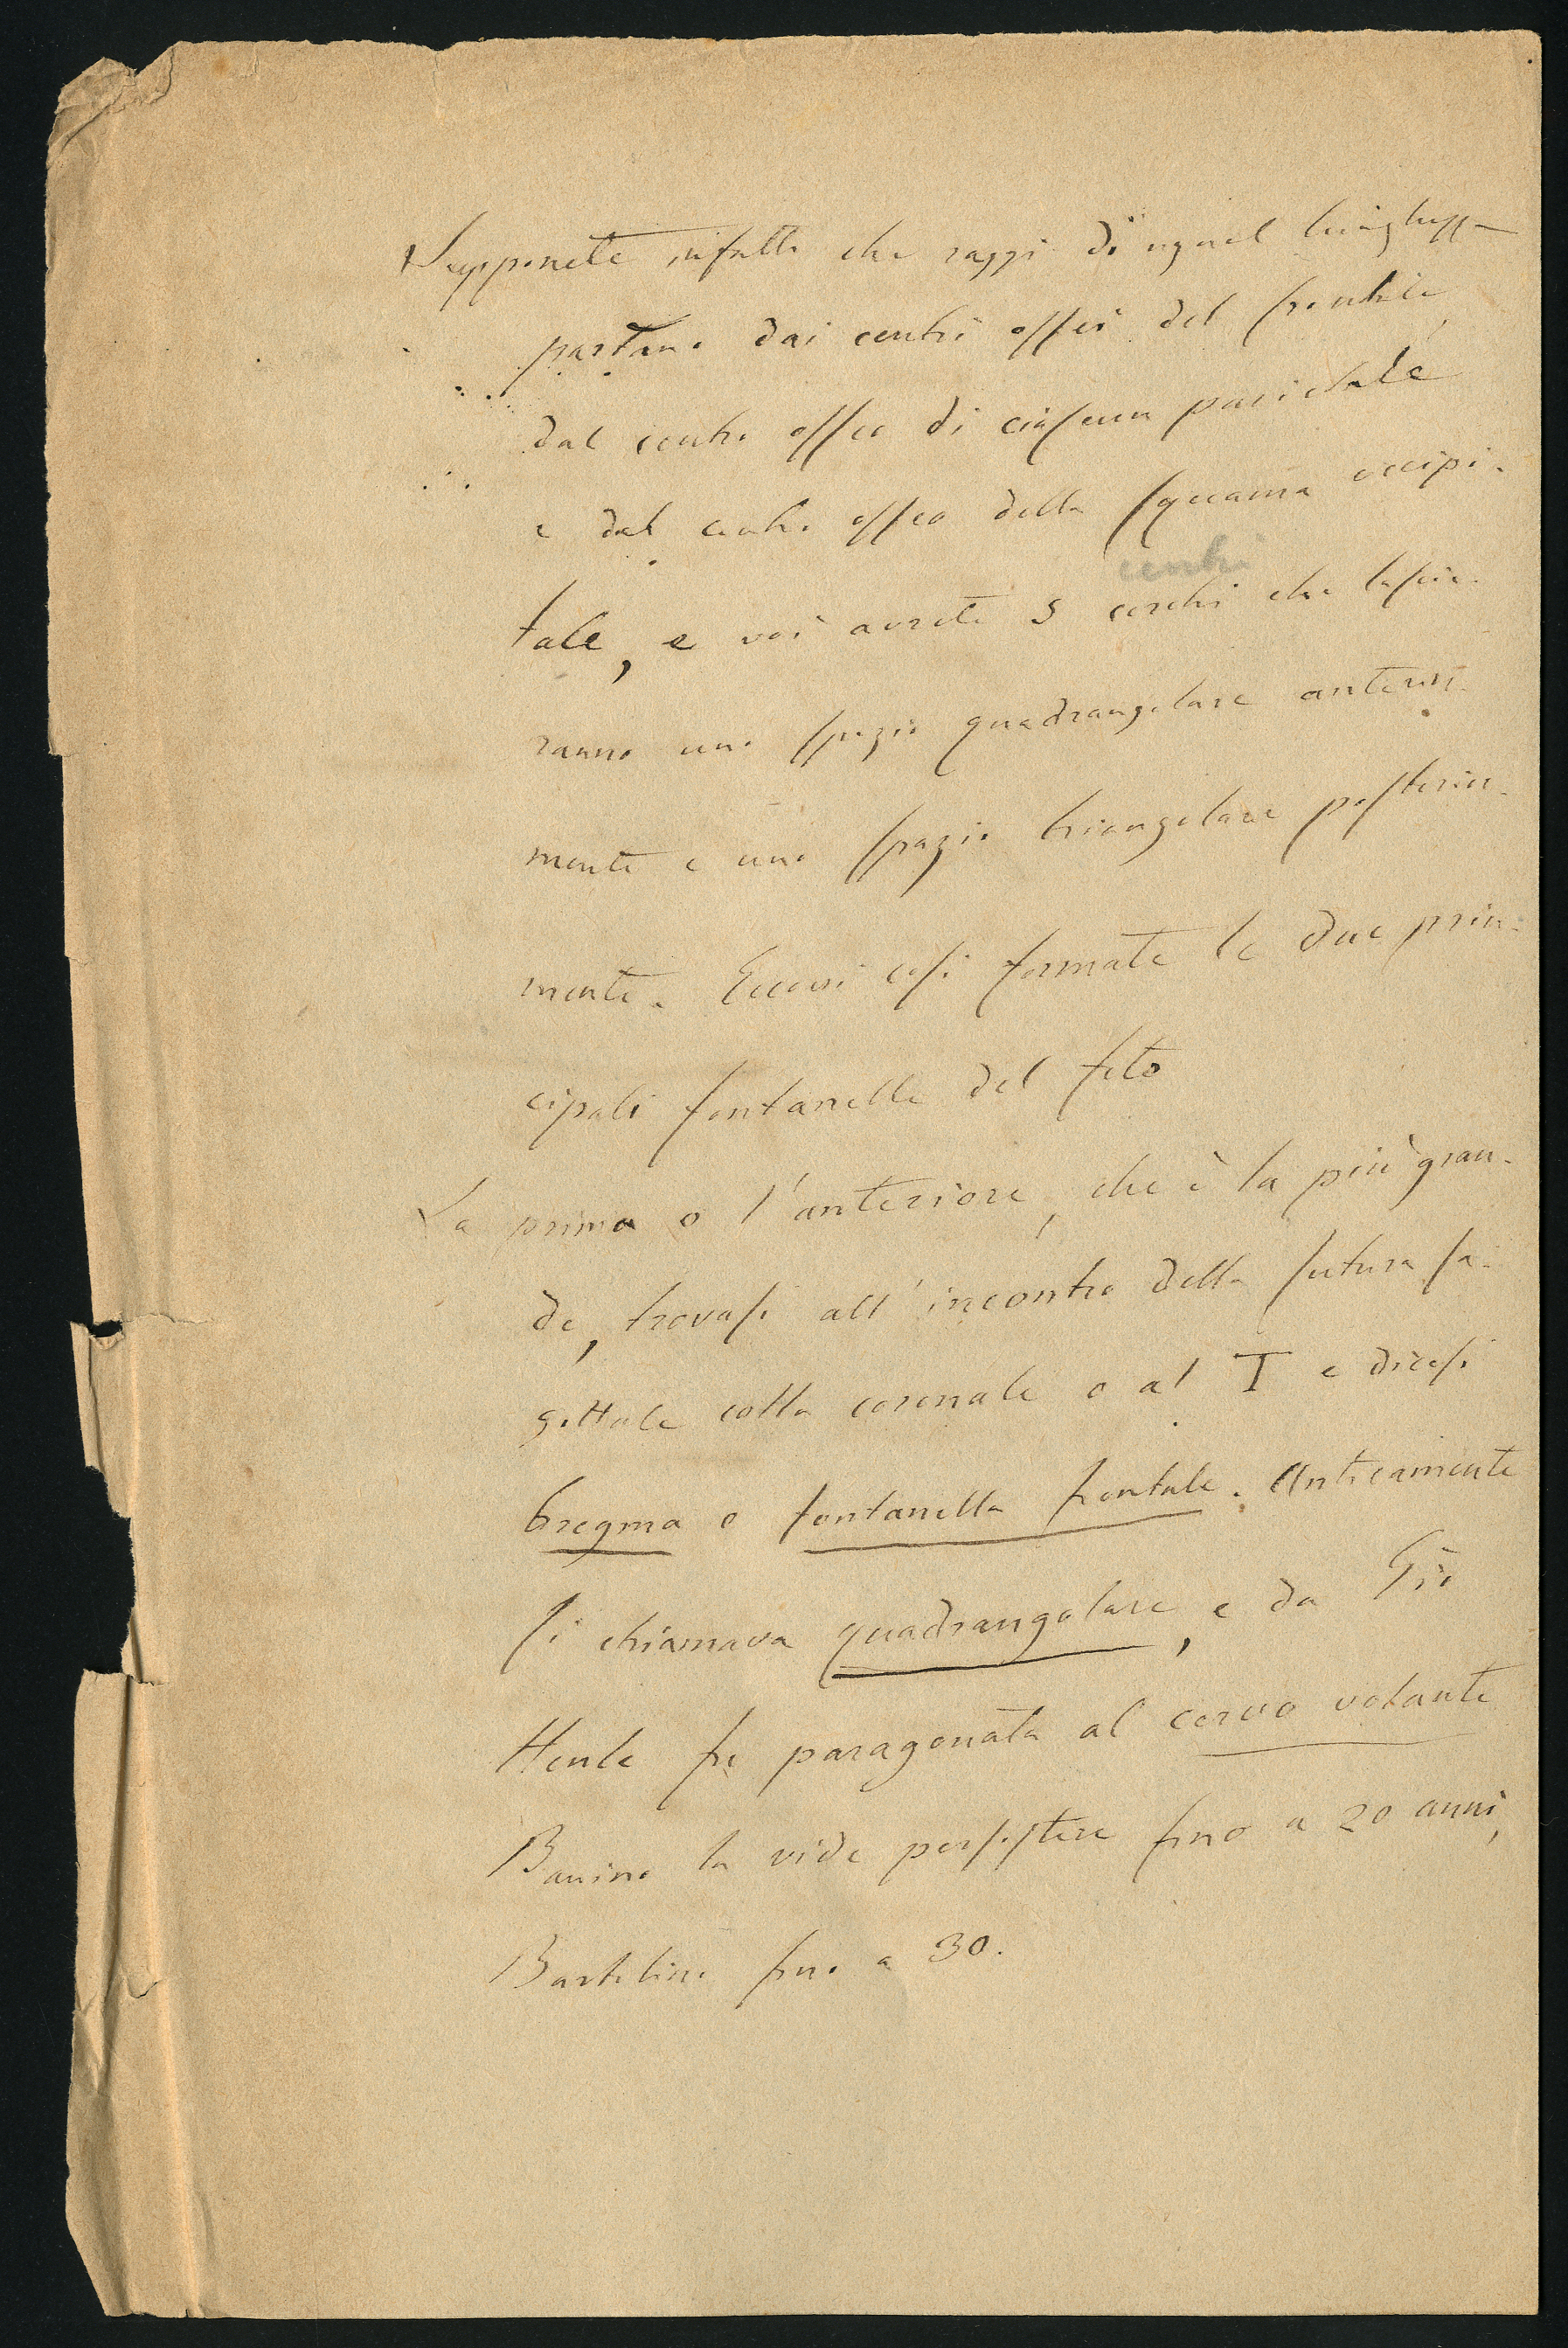 Supponete infatti che raggi di ugual lunghezza
partano dai centri ossei del frontale,
dal centro osseo di ciascun parietale
e dal centro osseo della squama occipi-
centri
tale, e voi avrete 5 cerchi che lascie-
ranno uno spazio quadrangolare anterior-
mente e uno spazio triangolare posterior-
mente. Eccovi così formate le due prin-
cipali fontanelle del feto
La prima o l'anteriore, che è la più gran-
de, trovasi all'incontro della sutura sa-
gittale colla coronale o al T e dicesi
bregma o fontanella frontale. Anticamente
si chiamava quadrangolare, e da Gio
Henle fu paragonata al cervo volante
Bauino la vide persistere fino a 20 anni,
Bartolino fino a 30.